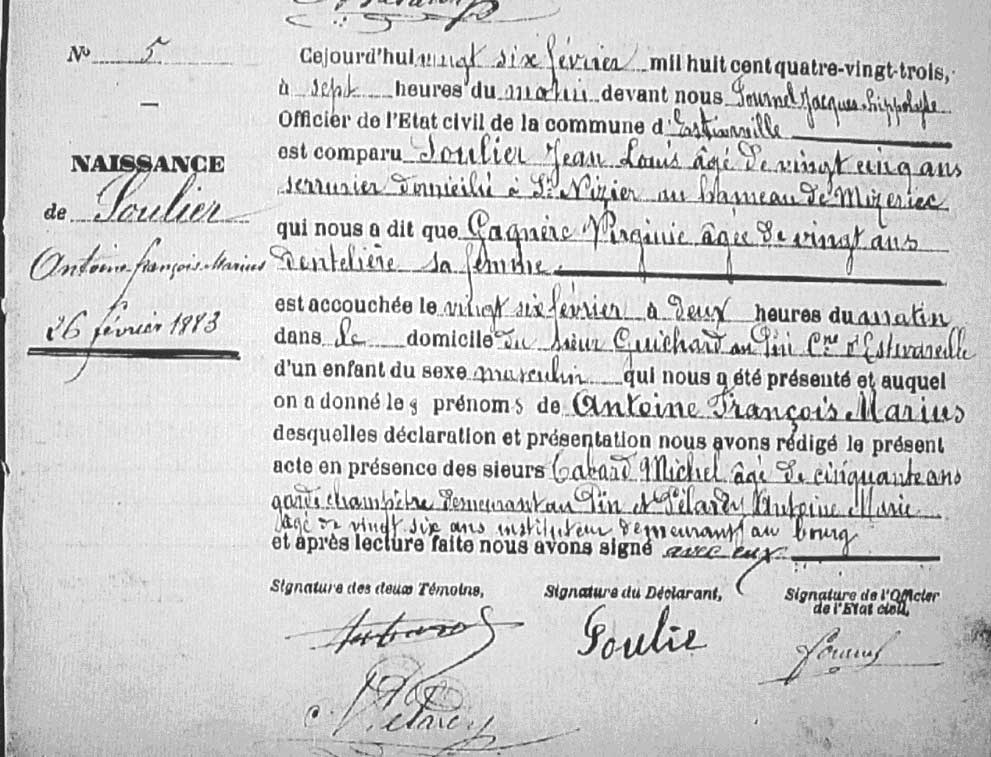 No 5
Cejourd'hui vingt six février mil huit cent quatre-vingt-trois,
à sept heures du matin devant nous Jacques hippolyte
Officier de l'Etat civil de la commune d'
NAISSANCE
de Soulier
Antoine françois Marius
26 février 1883
est comparu Soulier Jean Louis âgé de vingt cinq ans
serrurier domicilié à St Nizier au hameau de
qui nous a dit que Gagnère Virginie âgée de vingt ans
Dentelière sa femme
est accouchée le vingt six février à deux heures du matin
dans le domicile du sieur Guichard au Pin Cne d'Estivareille
d'un enfant du sexe masculin qui nous a été présenté et auquel
on a donné les prénoms de Antoine François Marius
desquelles déclaration et présentation nous avons rédigé le présent
acte en présence des sieurs Tabard Michel âgé de cinquante ans
garde champêtre demeurant au Pin et Antoine Marie
âgé de vingt six ans instituteur demeurant au bourg
et après lecture faite nous avons signé avec eux.
Signature des deux Témoins, Signature du Déclarant, Signature de l'Officier
de l'Etat civil,
Soulie